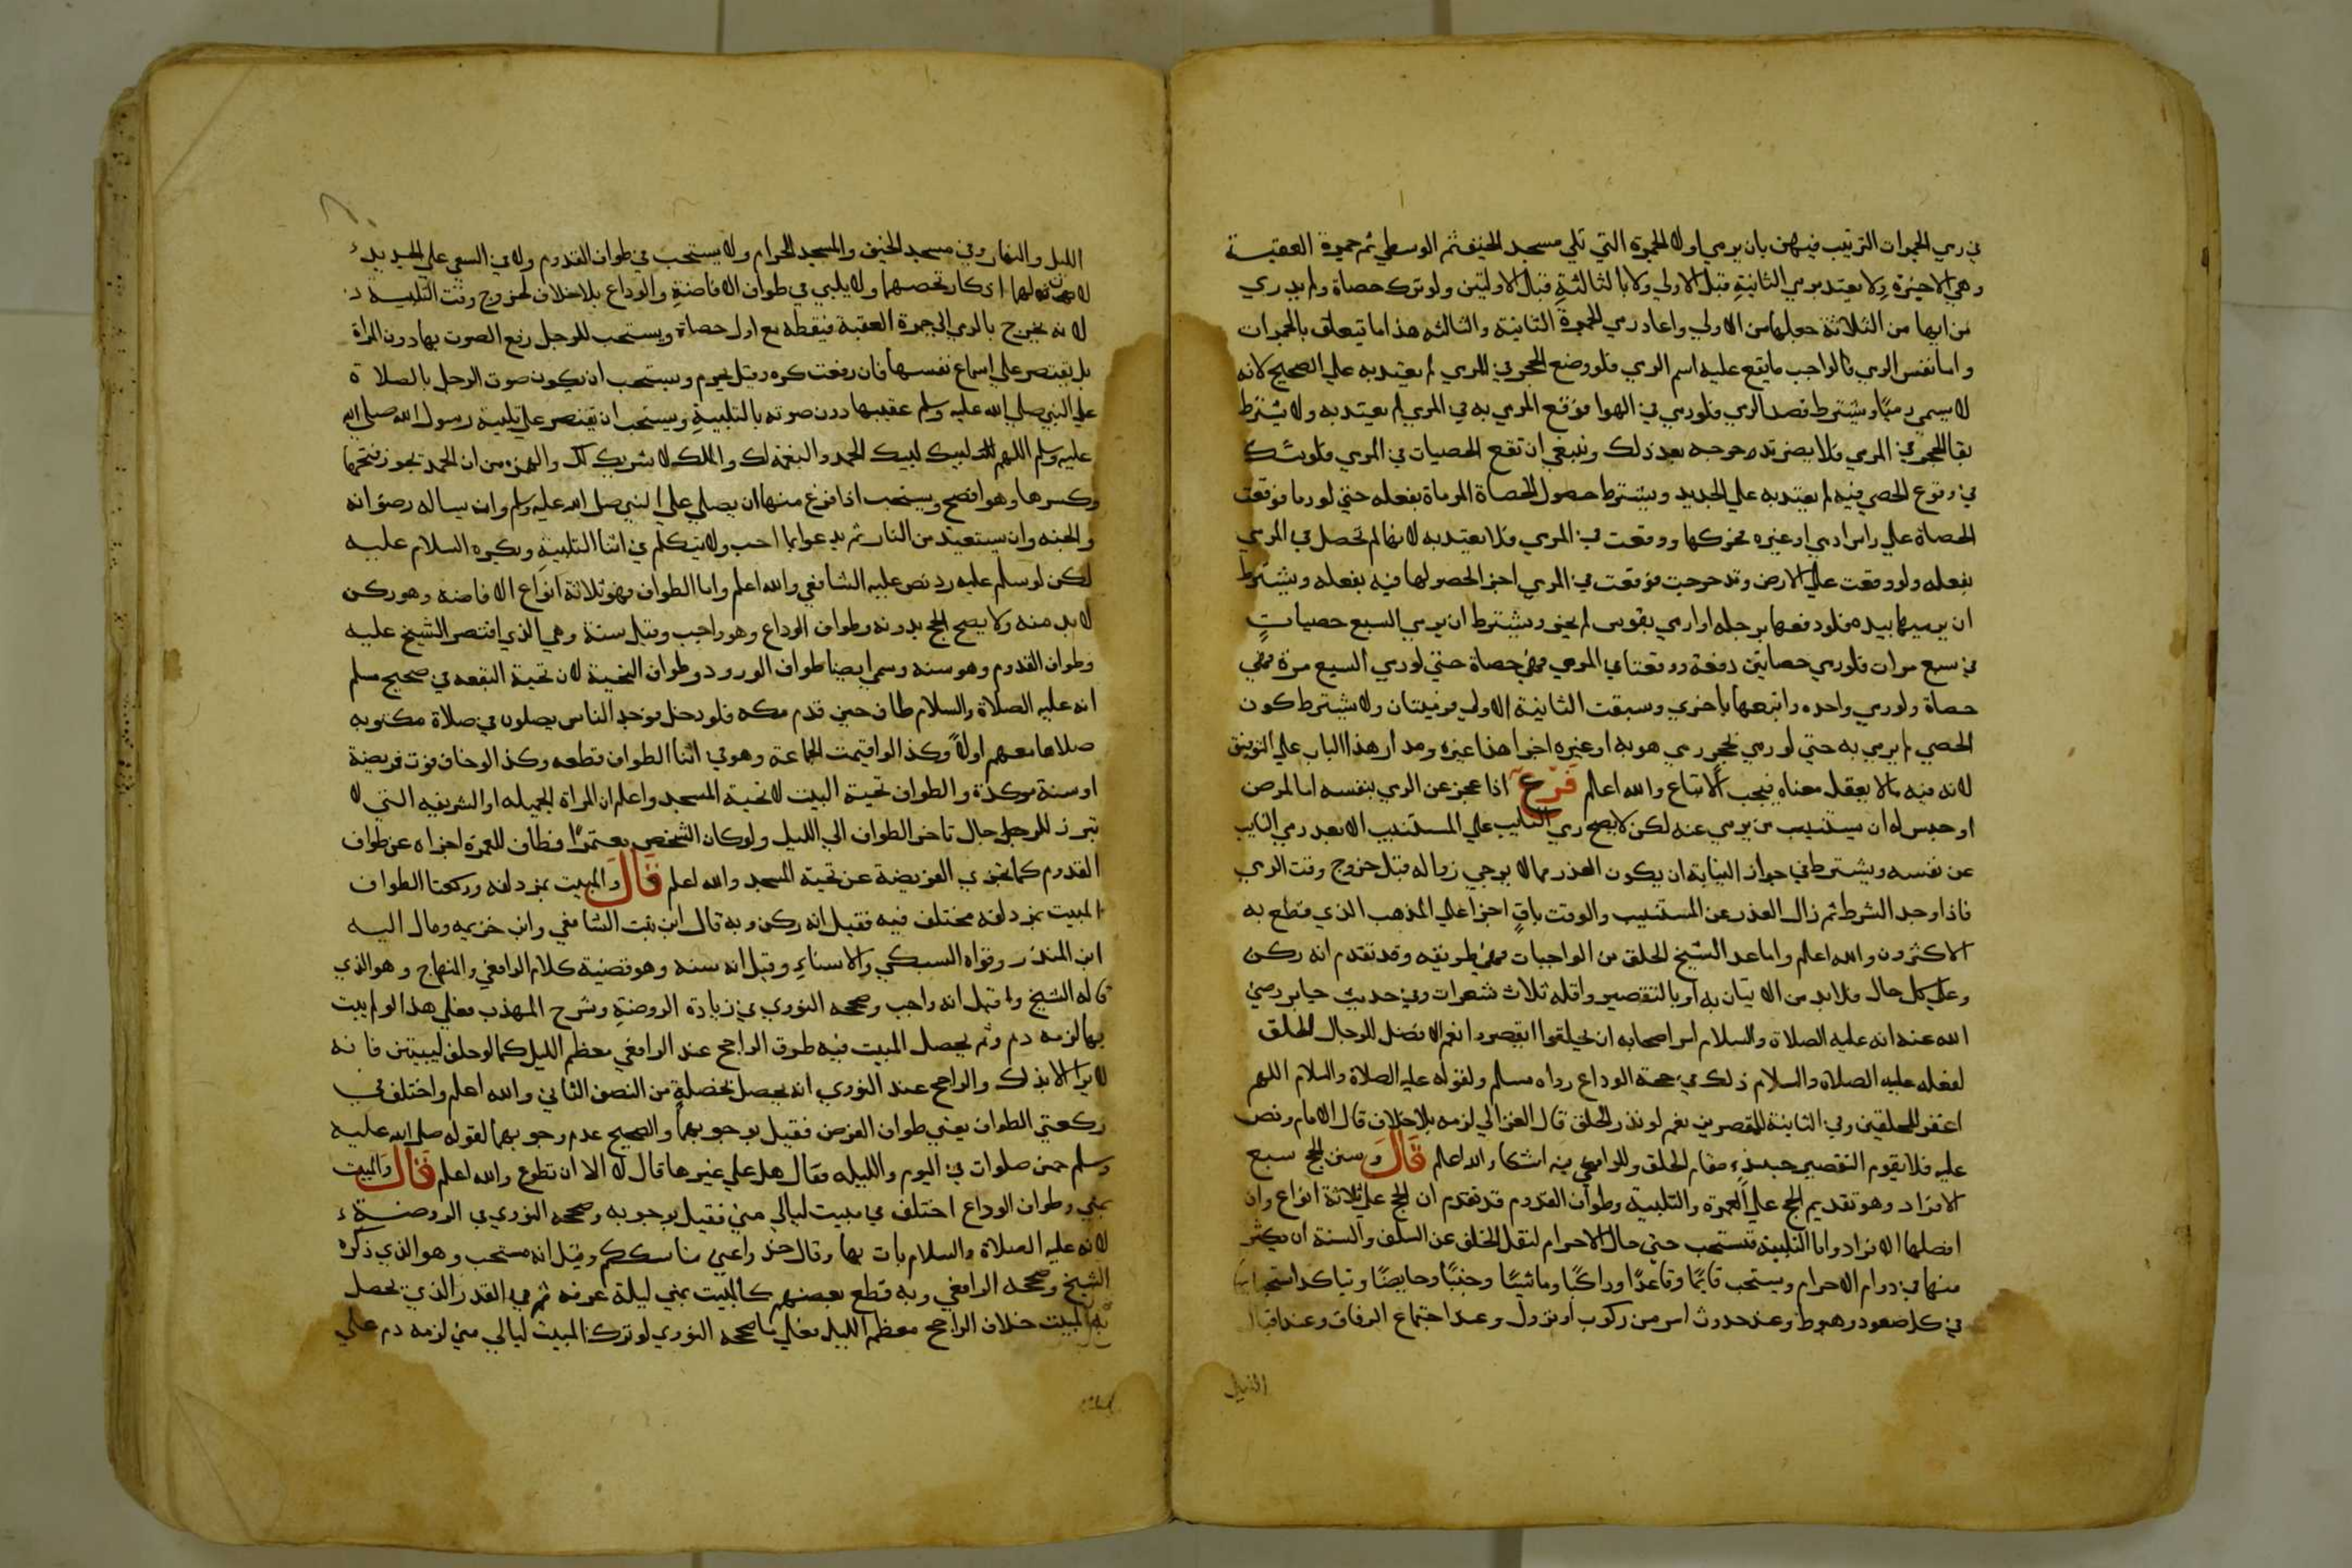 في رمي الجمرات الترتيب فيهن بان يرمي اولا الجمرة التي تلي مسجد الخيف ثم الوسطي ثم جمرة العقبة
وهي الاخيرة ولا يعتد برمي الثانية قبل الاولي ولا بالثالثة قبل الاولتين ولو ترك حصاة ولم يدري
من ايها من الثلاثة جعلها من الاولي واعاد رمي الجمرة الثانية والثالثه هذا ما يتعلق بالجمرات
واما نفس الرمي فالواجب ما يقع عليه اسم الرمي فلو وضع الحجر في المرمي لم يعتد به علي الصحيح لانه
لا يسمي رميًا ويشترط قصد الرمي فلو رمي في الهوا فوقع المرمي به في المرمي لم يعتد به ولا يشترط
بقا الحجر في المرمي فلا يضر تدحرجه بعد ذلك وينبغي ان تقع الحصيات في المرمي فلو شك
في وقوع الحصي فيه لم يعتد به علي الجديد ويشترط حصول الحصاة المرماة بفعله حتي لو رما فوقعت
الحصاة علي راس ادمي او غيره فحركها ووقعت في المرمي فلا يعتد به لانها لم تحصل في المرمي
بفعله ولو وقعت علي الارض وتدحرجت فوقعت في المرمي اجزا لحصولها فيه بفعله ويشترط
ان يرميها بيده فلو دفعها برجله او ارمي بقوس لم يجز ويشترط ان يرمي السبع حصياتٍ
في سبع مرات فلو رمي حصاتين دفعة ووقعتا في المرمي فهي حصاة حتي لو رمي السبع مرة فهي
حصاة ولو رمي واحده واتبعها باخري وسبقت الثانية الاولي فرميتان ولا يشترط كون
الحصي لم يرمي به حتي لو رمي بحجر رمي هو به او غيره اجزا هذا غيره ومدار هذا الباب علي التوفيق
لانه فيه ما لا يعقل معناه فيجب الاتباع والله اعلم فرع اذا عجز عن الرمي بنفسه اما لمرض
او حبس له ان يستنيب من يرمي عنه لكن لا يصح رمي النايب علي المستنيب الا بعد رمي النايب
عن نفسه ويشترط في جواز النيابة ان يكون العذر مما لا يرجي زواله قبل خروج وقت الرمي
فاذا وجد الشرط ثم زال العذر عن المستنيب والوقت باقٍ اجزا علي المذهب الذي قطع به
الاكثرون والله اعلم واما عد الشيخ الحلق من الواجبات فهي طريقه وقد تقدم انه ركن
وعلي كل حال فلا بد من الاتيان به او بالتقصير واقله ثلاث شعرات وفي حديث جابر رضي
الله عنه انه عليه الصلاة والسلام امر اصحابه ان يحلقوا او يقصروا نعم الافضل للرجال الحلق
لفعله عليه الصلاة والسلام ذلك في حجة الوداع رواه مسلم ولقوله عليه الصلاة والسلام اللهم
اغفر للمحلقين وفي الثانية للمقصرين نعم لو نذر الحلق قال الغزالي لزمه بلا خلاف قال الامام ونص
عليه فلا يقوم التقصير حينيذ مقام الحلق وللرافعي فيه اشكال والله اعلم قال وسنن الحج سبع
الافراد وهو تقديم الحج علي العمرة والتلبية وطواف القدوم قد تقدم ان الحج علي ثلاثة انواع وان
افضلها الافراد واما التلبية فتستحب حتي حال الاحرام لنقل الخلف عن السلف والسنة ان يكثر
منها في دوام الاحرام ويستحب قايمًا وقاعدًا وراكبًا وماشيًا وجنبًا وحايضًا ويتاكد استحبابها
في كل صعود وهبوط وعند حدوث امر من ركوب او نزول وعند اجتماع الرفاق وعند اقبال
الليل
الليل والنهار وفي مسجد الخيف والمسجد الحرام ولا يستحب في طواف القدوم ولا في السعي علي الجديد
لان لها اذكار تخصها ولا يلبي في طواف الافاضة والوداع بلا خلاف لخروج وقت التلبية
لانه يخرج بالرمي الي جمرة العقبة فيقطه مع اول حصاة ويستحب للرجل رفع الصوت بها دون المراة
بل يقتصر علي اسماع نفسها فان رفعت كره وقيل يحرم ويستحب ان يكون صوت الرجل بالصلاة
علي النبي صلي الله عليه وسلم عقيبها دون صوته بالتلبية ويستحب ان يقتصر علي تلبية رسول الله صلي الله
عليه وسلم اللهم لبيك لبيك الحمد والنعمة لك والملك لا شريك لك والهمزه من ان الحمد يجوز فتحها
وكسرها وهو افصح ويستحب اذا فرغ منها ان يصلي علي النبي صلي الله عليه وسلم وان يساله رضوانه
والجنه وان يستعيذ من النار ثم يدعوا بما احب ولا يتكلم في اثنا التلبية ويكره السلام عليه
لكن لو سلم عليه رد نص عليه الشافعي والله اعلم واما الطواف فهو ثلاثة انواع الافاضه وهو ركن
لا بد منه ولا يصح الحج بدونه وطواف الوداع وهو واجب وقيل سنة وهي الذي اقتصر الشيخ عليه
وطواف القدوم وهو سنه وسمي ايضا طواف الورود وطواف التحية لان تحية البقعه في صحيح مسلم
انه عليه الصلاة والسلام طاف حين قدم مكه فلو دخل فوجد الناس يصلون في صلاة مكتوبه
صلاها معهم اولاً وكذا لو اقيمت الجماعة وهو في اثنا الطواف قطعه وكذا لو خاف فوت فريضة
او سنة موكدة والطواف تحية البيت لا تحية المسجد واعلم ان المراة الجميله او الشريفه التي لا
تبرز للرجال تاخر الطواف الي الليل ولو كان الشخص معتمرًا فطاف للعمرة اجزاه عن طواف
القدوم كما تجزي الفريضة عن تحية المسجد والله اعلم قال والمبيت بمزدلفه وركعتا الطواف
المبيت بمزدلفه مختلف فيه فقيل انه ركن وبه قال ابن بنت الشافعي وابن خزيمه ومال اليه
ابن المنذر وقواه السبكي والاسناي وقيل انه سنه وهو قضية كلام الرافعي والمنهاج وهو الذي
قاله الشيخ وقيل انه واجب وصححه النووي في زيادة الروضة وشرح المهذب فعلي هذا لو لم يبت
بها لزمه دم وبم يحصل المبيت فيه طرق الراجح عند الرافعي معظم الليل كما لو حلف ليبيتن فانه
لا يبرا الا بذلك والراجح عند النووي انه يحصل بخصلة من النصف الثاني والله اعلم واختلف في
ركعتي الطواف يعني طواف الفرض فقيل بوجوبهما والصحيح عدم وجوبهما لقوله صلي الله عليه
وسلم خمس صلوات في اليوم والليله فقال هل علي غيرها قال لا الا ان تطوع والله اعلم قال والمبيت
بمني وطواف الوداع اختلف في مبيت ليالي مني فقيل بوجوبه وصححه النووي في الروضة
لانه عليه الصلاة والسلام بات بها وقال خذوا عني مناسككم وقيل انه مستحب وهو الذي ذكره
الشيخ وصححه الرافعي وبه قطع بعضهم كالمبيت بمني ليلة عرفه ثم في القدر الذي يحصل
به المبيت خلاف الراجح معظم الليل فعلي ما صححه النووي لو ترك المبيت ليالي مني لزمه دم علي